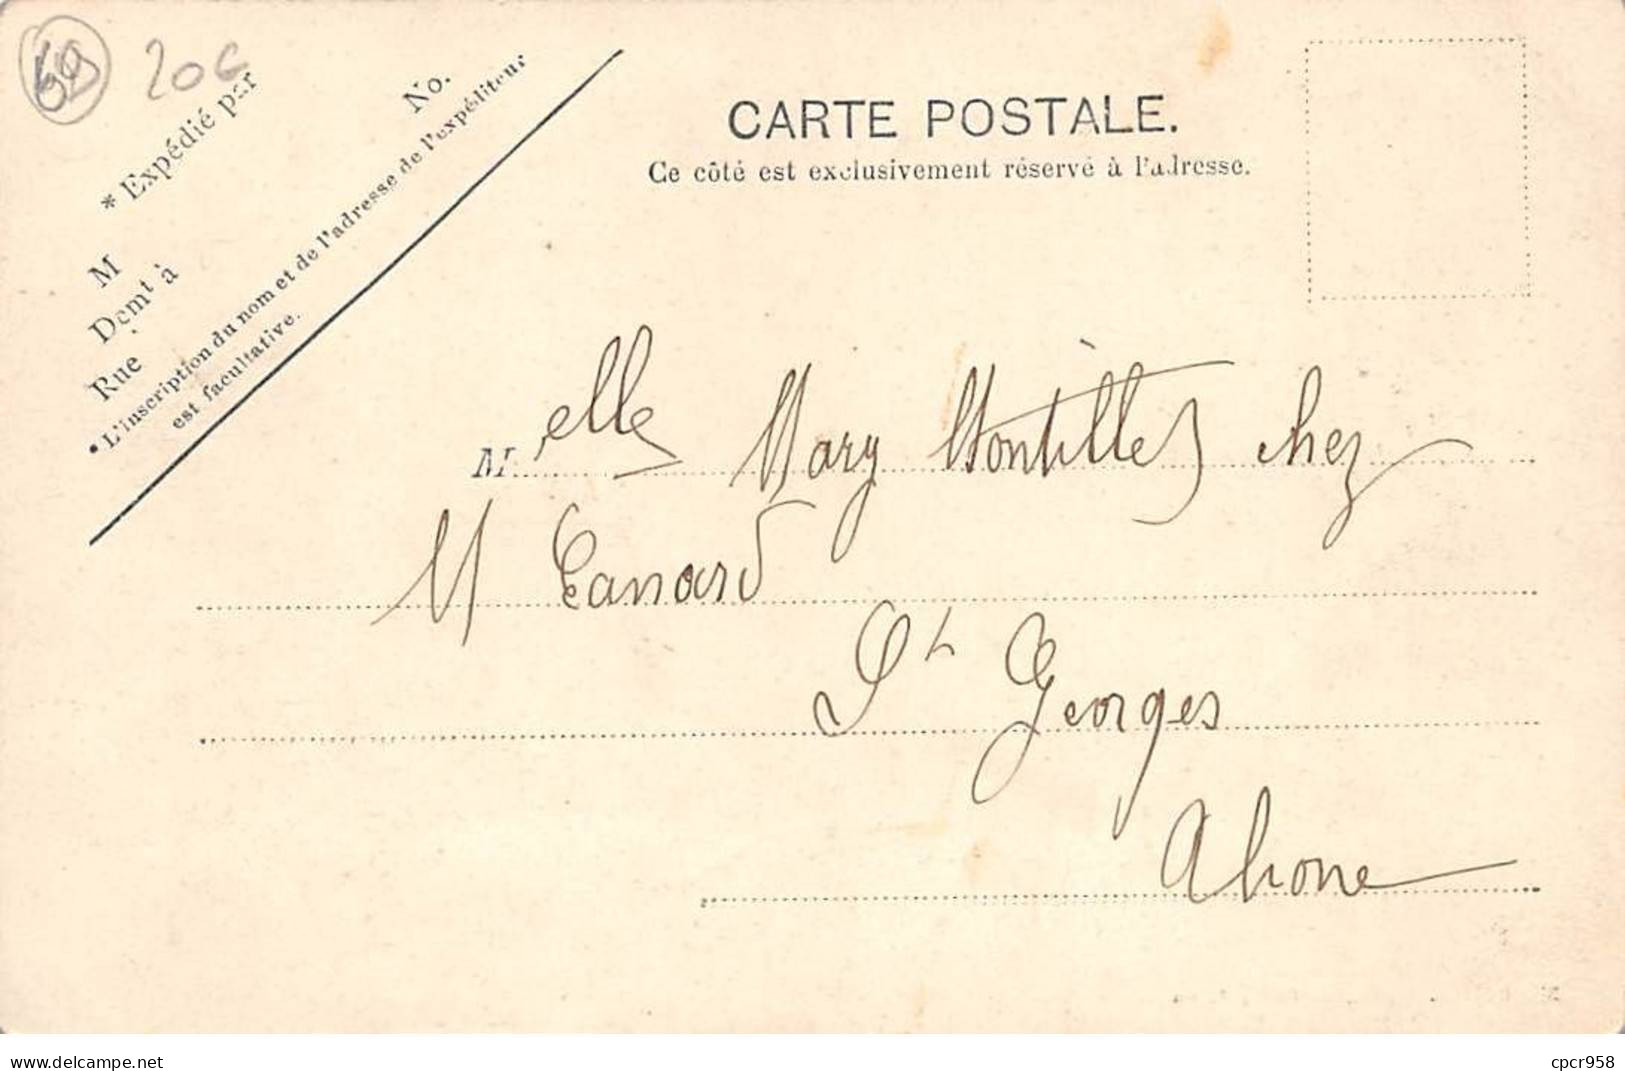 69 20€
No.
* Expédié par
M
Demt à
Rue
* L'inscription du nom et de l'adresse de l'expéditeur
est facultative.
CARTE POSTALE.
Ce côté est exclusivement réservé à l'adresse.
Melle Mary Montilles chez
M Canard
St Georges
Rhone
www.delcampe.net cpcr958